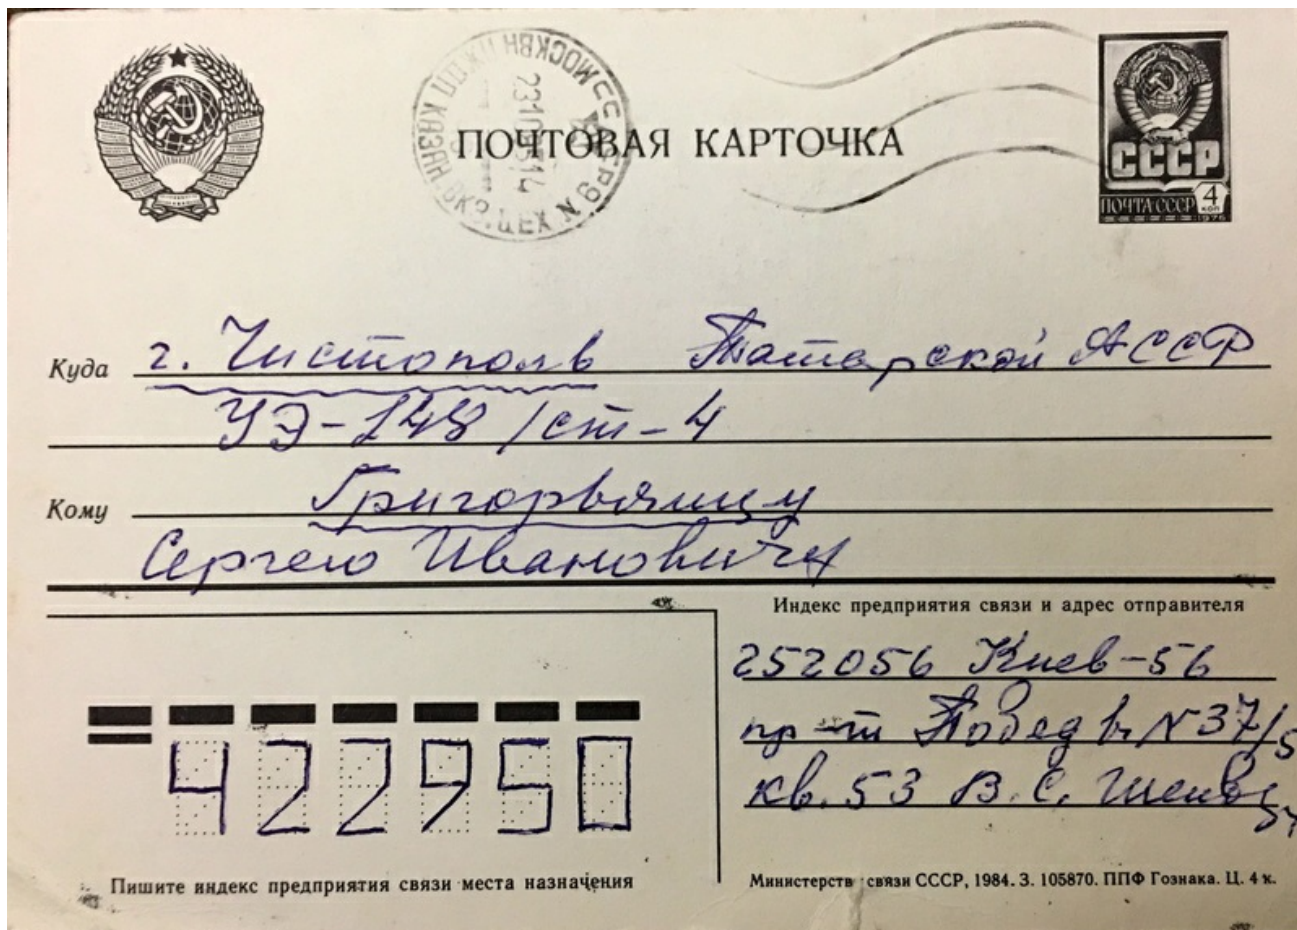 ПОЧТОВАЯ КАРТОЧКА
СССР
ПОЧТА СССР 4 коп
1976
Куда г. Чистополь Татарской АССР
УЭ-148/ст-4
Кому Григорьянцу
Сергею Ивановичу
Индекс предприятия связи и адрес отправителя
252056 Киев-56
пр-т Победы N 37/5
кв. 53 В. С.
422950
Пишите индекс предприятия связи места назначения
Министерств связи СССР, 1984. З. 105870. ППФ Гознака. Ц. 4 к.